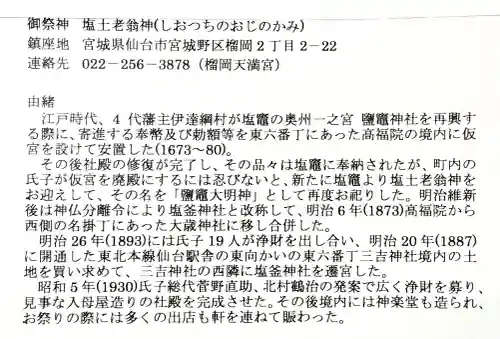 御祭神　塩土老翁神(しおつちのおじのかみ)
鎮座地　宮城県仙台市宮城野区榴岡2丁目2－22
連絡先　022－256－3878（榴岡天満宮）
由緒
江戸時代、4 代藩主伊達綱村が塩竈の奥州一之宮 鹽竈神社を再興す
る際に、寄進する奉幣及び勅額等を東六番丁にあった高福院の境内に仮
宮を設けて安置した(1673～80)。
その後社殿の修復が完了し、その品々は塩竈に奉納されたが、町内の
氏子が仮宮を廃殿にするには忍びないと、新たに塩竈より塩土老翁神を
お迎えして、その名を「鹽竈大明神」として再度お祀りした。明治維新
後は神仏分離令により塩釜神社と改称して、明治 6 年(1873)高福院から
西側の名掛丁にあった大歳神社に移し合併した。
明治 26 年(1893)には氏子 19 人が浄財を出し合い、明治 20 年(1887)
に開通した東北本線仙台駅舎の東向かいの東六番丁三吉神社境内の土
地を買い求めて、三吉神社の西隣に塩釜神社を遷宮した。
昭和 5 年(1930)氏子総代菅野直助、北村鶴治の発案で広く浄財を募り、
見事な入母屋造りの社殿を完成させた。その後境内には神楽堂も造られ、
お祭りの際には多くの出店も軒を連ねて賑わった。